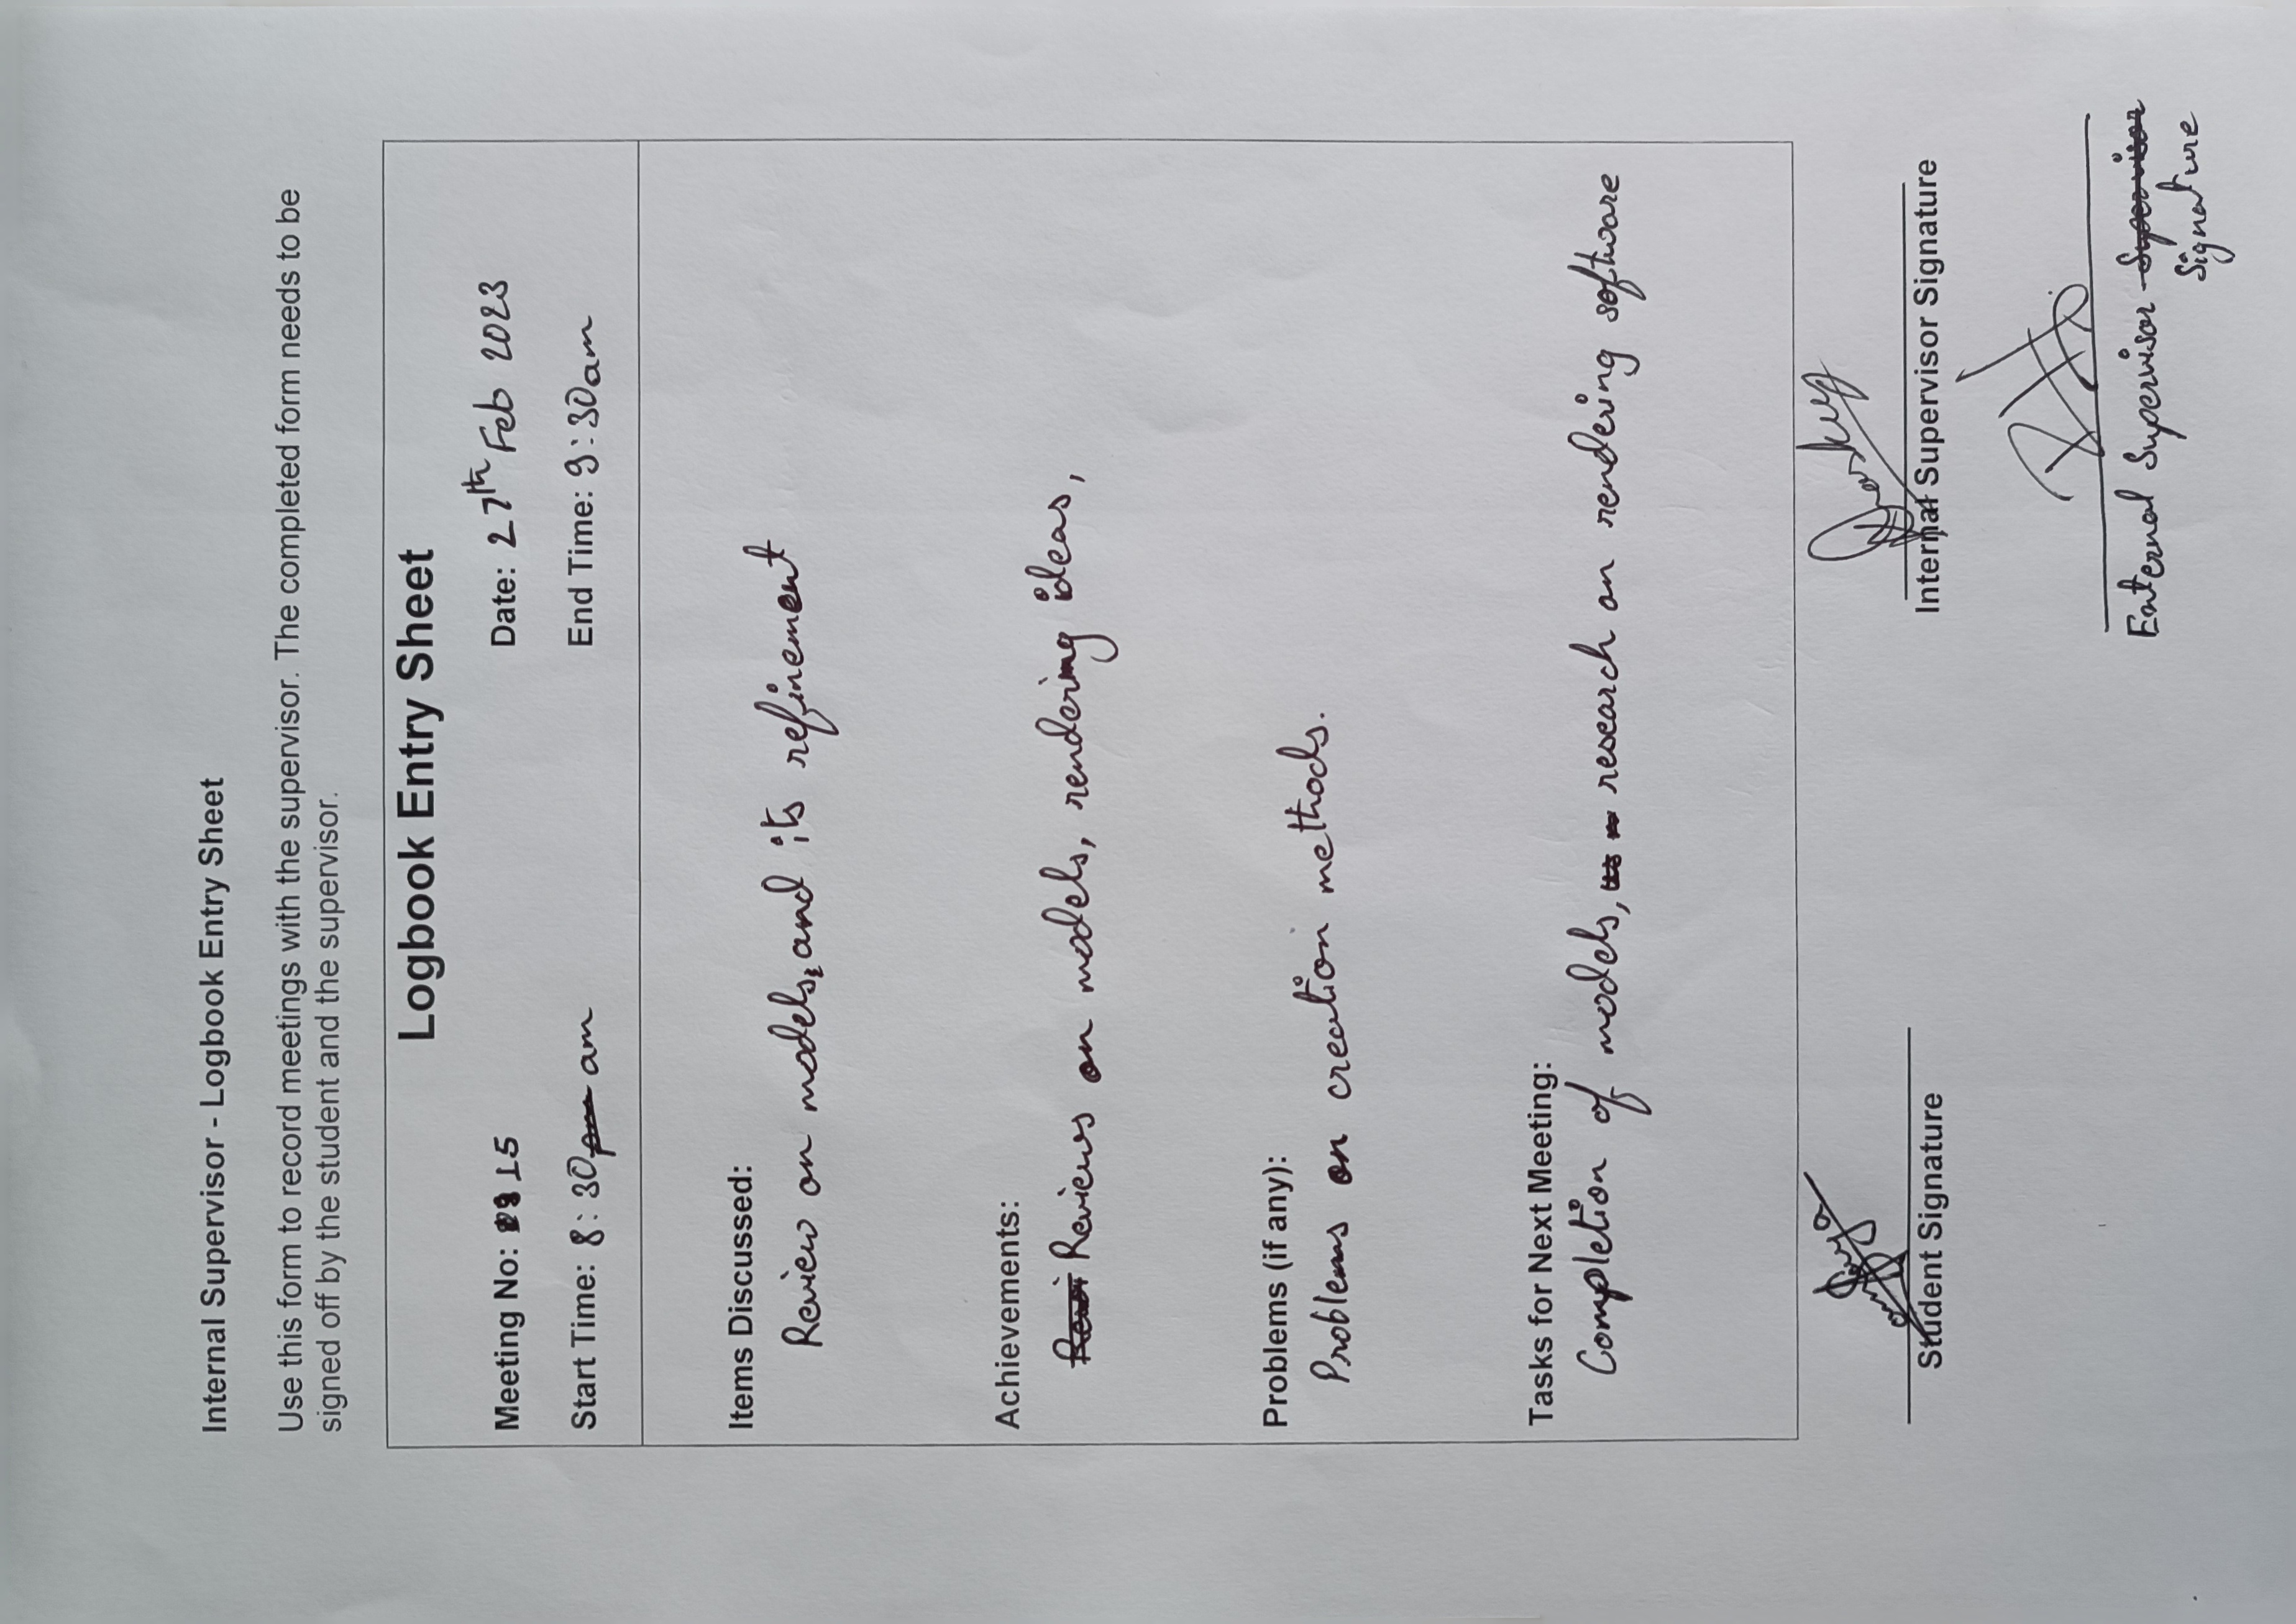 Internal Supervisor - Logbook Entry Sheet
Use this form to record meetings with the supervisor. The completed form needs to be
signed off by the student and the supervisor.
Logbook Entry Sheet
Meeting No: 15 Date: 27th Feb 2023
Start Time: 8:30 pm am End Time: 9:30am
Items Discussed:
Review on models, and its refinement
Achievements:
Reviews on models, rendering ideas,
Problems (if any):
Problems on creation methods.
Tasks for Next Meeting:
Completion of models, research on rendering software
Student Signature Internal Supervisor Signature
External Supervisor Supervisor
Signature